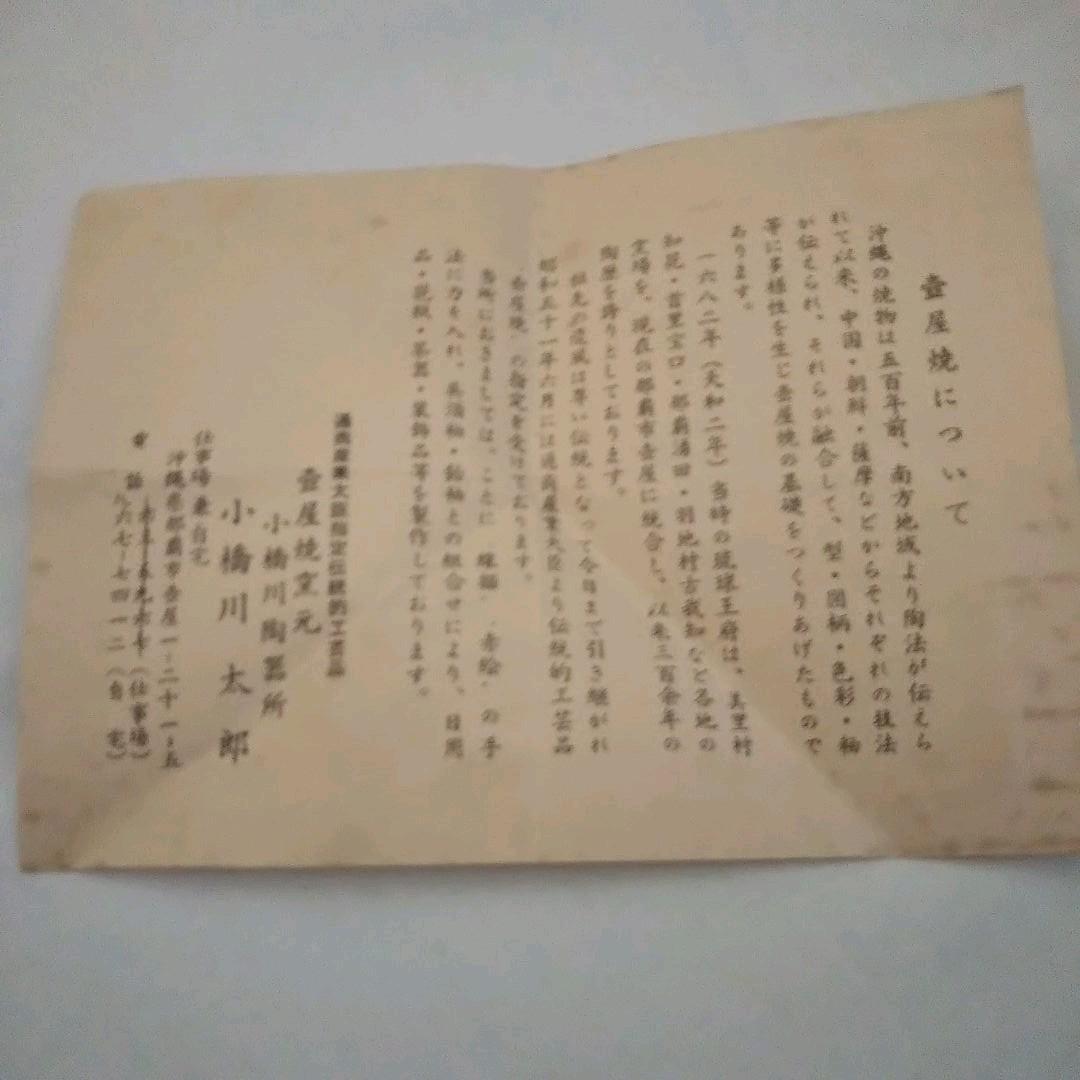 壺屋焼について
沖縄の焼物は五百年前、南方地域より陶法が伝えら
れて以来、中国・朝鮮・薩摩などからそれぞれの技法
が伝えられ、それらが融合して、型・図柄・色彩・釉
等に多様性を生じ壺屋焼の基礎をつくりあげたもので
あります。
一六八二年(天和二年)当時の琉球王府は、美里村
知花・首里宝口・那覇湧田・羽地村古我知など各地の
窯場を、現在の那覇市壺屋に統合し、以来三百余年の
陶歴を誇りとしております。
伝九の造風は尊い伝統となって今日まで引き継がれ
昭和五十一年六月には通商産業大臣より伝統的工芸品
壺屋焼の指定を受けております。
当所におきましては、ことに 線描・赤絵 の手
法に力を入れ、呉須釉・飴釉との組合せにより、日用
品・花瓶・茶器・装飾品等を製作しております。
通商産業大臣指定伝統的工芸品
壺屋焼窯元
小橋川陶器所
小橋川太郎
仕事場兼自宅
沖縄県那覇市壺屋一ー二十一ー五
電話 (仕事場)
八六七ー七四一二(自宅)